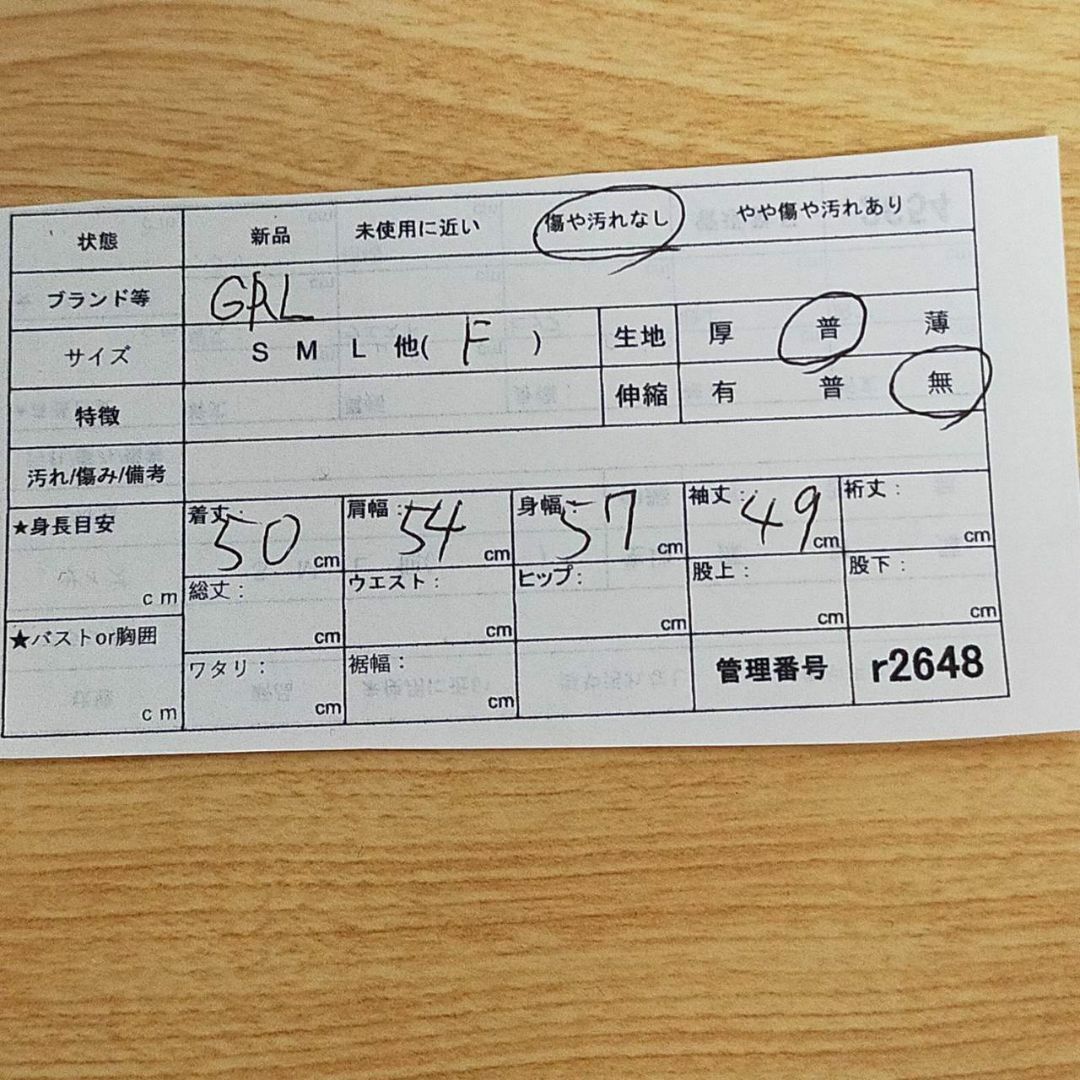 状態 新品 未使用に近い 傷や汚れなし やや傷や汚れあり
ブランド等 GRL
サイズ S M L 他( F ) 生地 厚 普 薄
特徴 伸縮 有 普 無
汚れ/傷み/備考
★身長目安 cm
着丈: 50 cm 肩幅: 54 cm 身幅: 57 cm 袖丈: 49 cm 裄丈: cm
総丈: cm ウエスト: cm ヒップ: cm 股上: cm 股下: cm
★バストor胸囲 cm
ワタリ: cm 裾幅: cm 管理番号 r2648